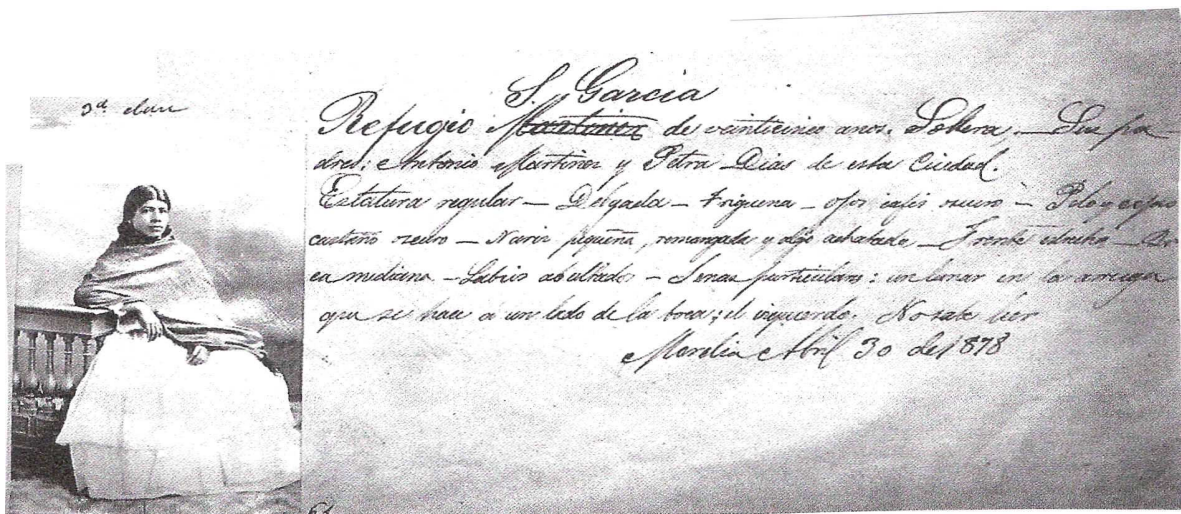 3ª clase
S. Garcia
Refugio Martinez de veinticinco anos. Soltera, — Sus pa
dres: Antonio Martinez y Petra Dias de esta Ciudad.
Estatura regular — Delgada — Triguena — ojos cafés oscuro — Pelo y cejas
castaño oscuro — Nariz pequeña, remangada y algo achatada — Frente estrecha — Bo
ca mediana — Labios abultados — Senas particulares: un lunar en la arruga
que se hace a un lado de la boca; el izquierdo. No sabe leer
Morelia Abril 30 de 1878